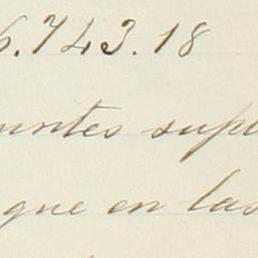 6.743.18
untes supl
que en las